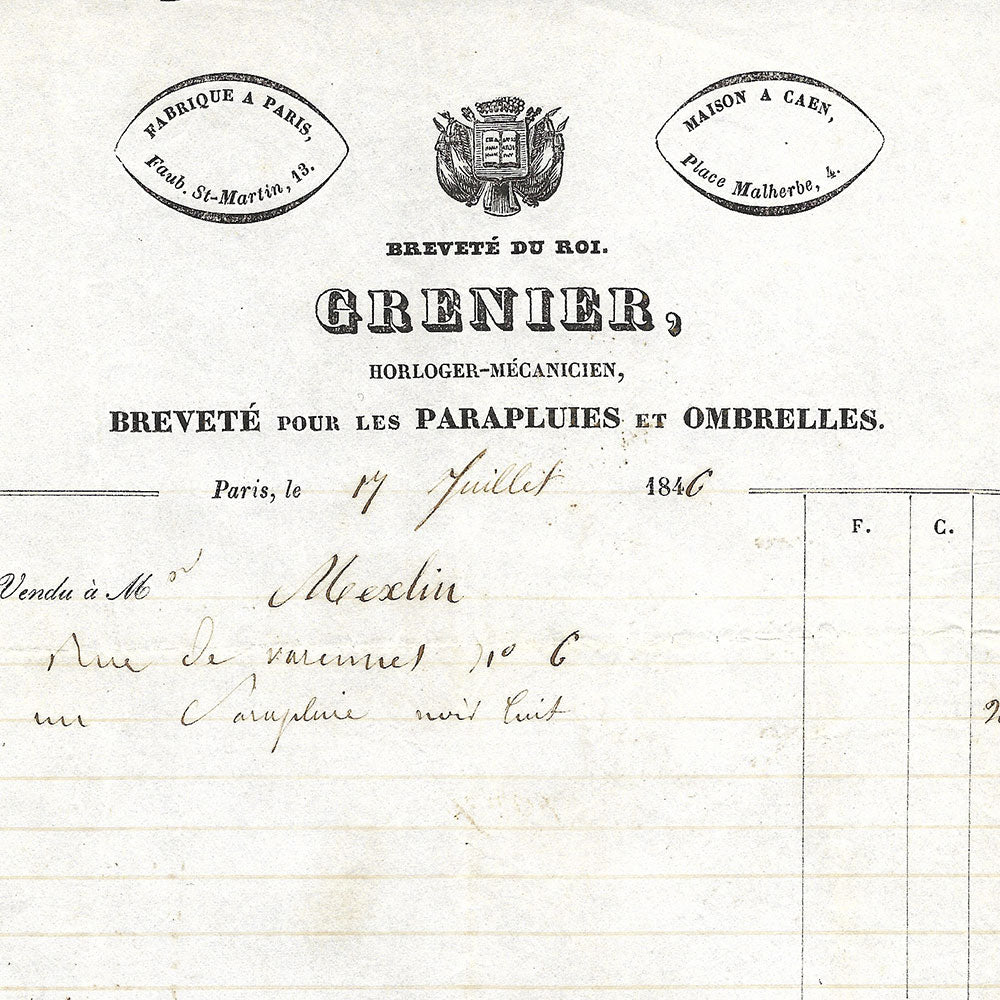 FABRIQUE A PARIS,
Faub. St-Martin, 13.
MAISON A CAEN,
Place Malherbe, 4.
BREVETÉ DU ROI.
GRENIER,
HORLOGER-MÉCANICIEN,
BREVETÉ POUR LES PARAPLUIES ET OMBRELLES.
Paris, le 17 Juillet 1846
F. C.
Vendu à Mor Mexlin
Rue de varennes no 6
un Parapluie noir